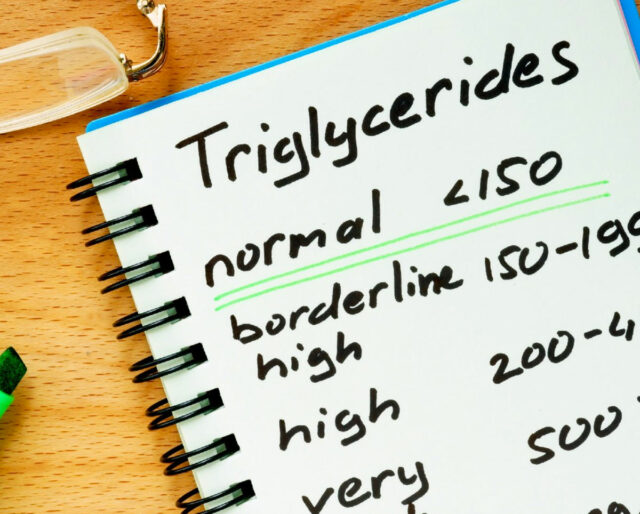 Triglycerides
normal <150
borderline 150-199
high
high 200-4
very 500